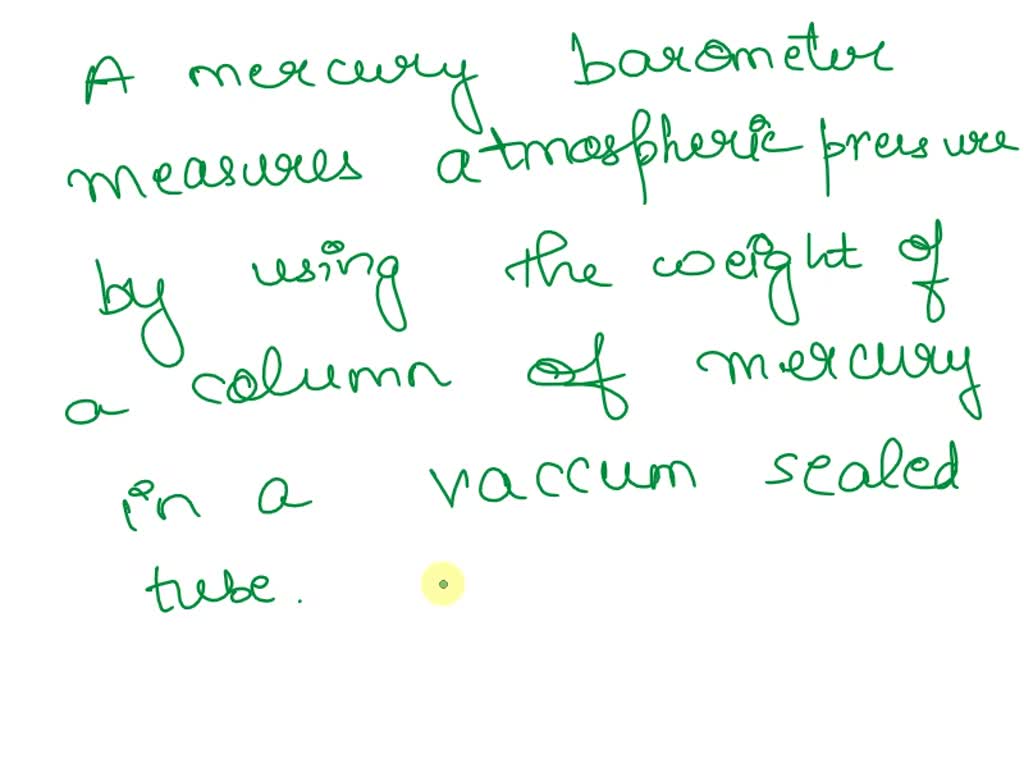 A mercury barometer
measures atmospheric pressure
by using the weight of
a column of mercury
in a vaccum sealed
tube.